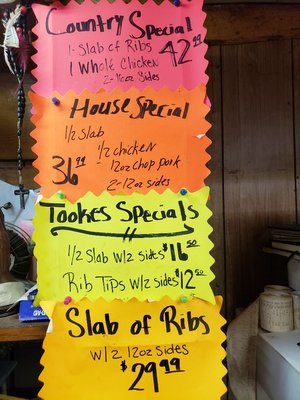 Country Special
1- Slab of Ribs 42.99
1 Whole Chicken
2-16oz Sides
House Special
1/2 Slab
1/2 chicken
36.99 - 12oz Chop pork
2-12oz sides
Tookes Specials
1/2 Slab w/2 sides $16.50
Rib Tips w/2 sides $12.50
Slab of Ribs
w/2 12oz sides
$29.99